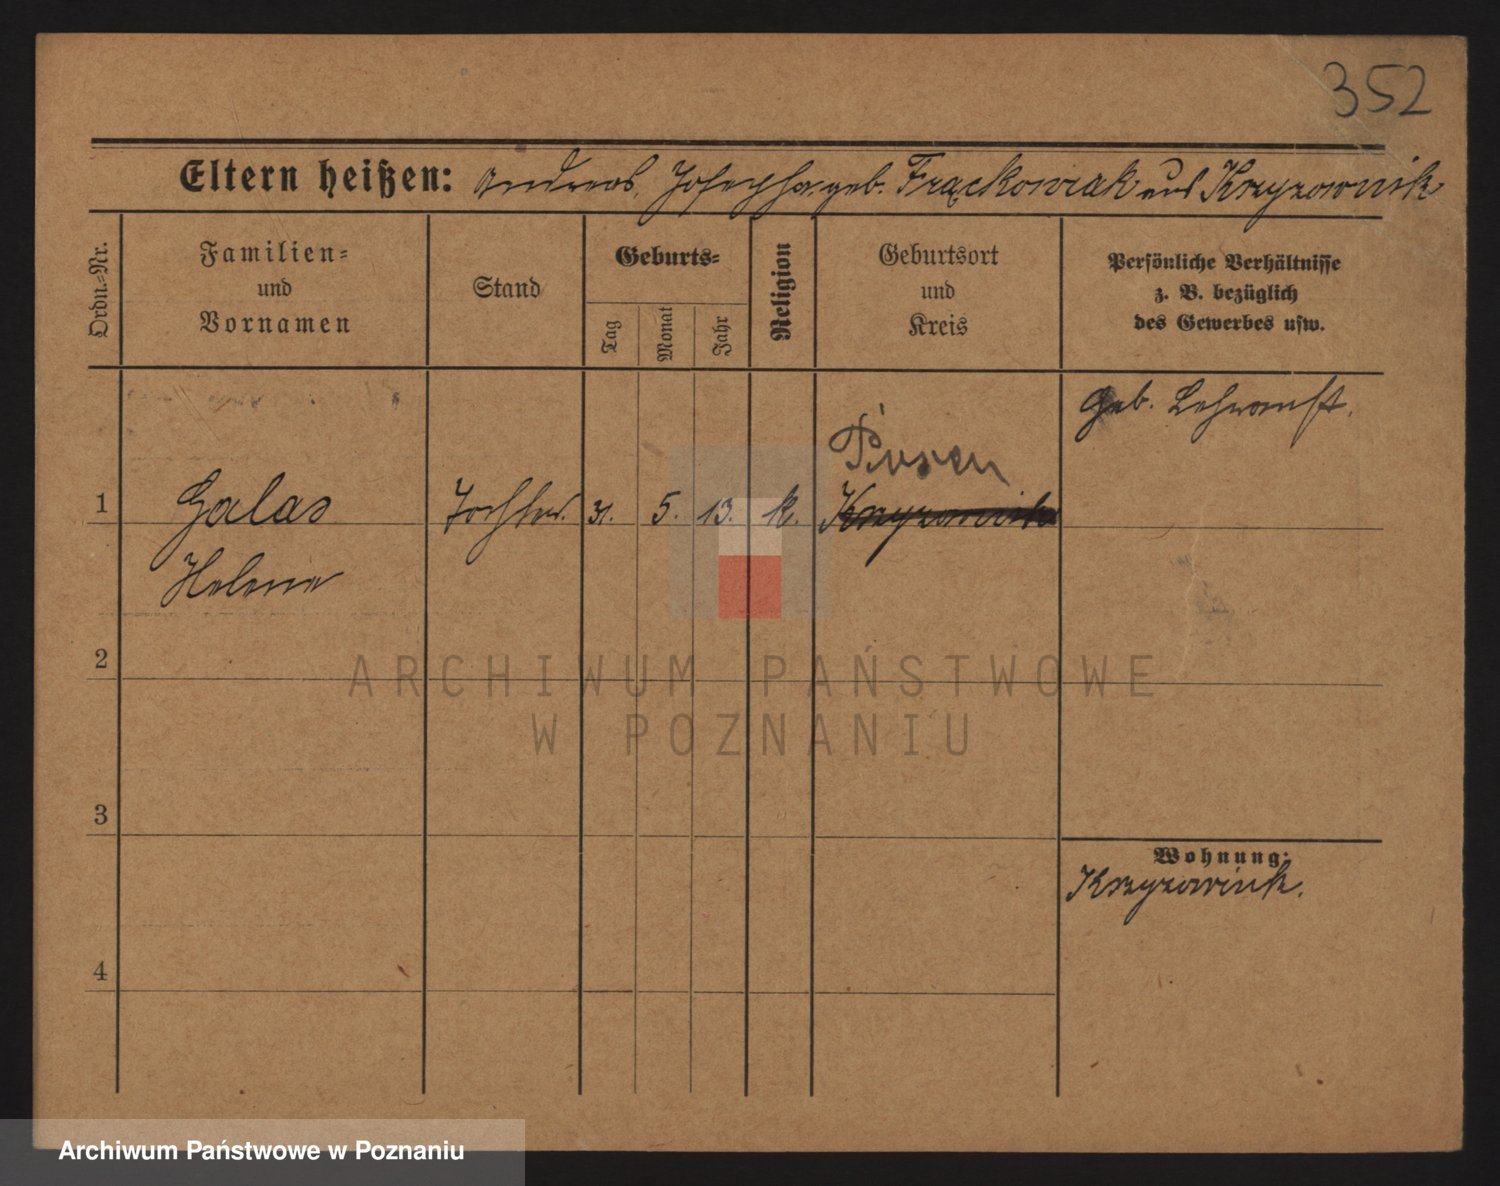 352
Eltern heißen: Andreas, Josepha geb. Frąckowiak aus Krzyzownik
Ordn.=Nr.
Familien=
und
Vornamen
Stand
Geburts=
Tag
Monat
Jahr
Religion
Geburtsort
und
Kreis
Persönliche Verhältnisse
z. B. bezüglich
des Gewerbes usw.
geb.
Posen
1 Galas Tochter. 31. 5. 13. k. Krzyzownik
Helene
2
ARCHIWUM PAŃSTWOWE
W POZNANIU
3
Wohnung:
Krzyzownik.
4
Archiwum Państwowe w Poznaniu